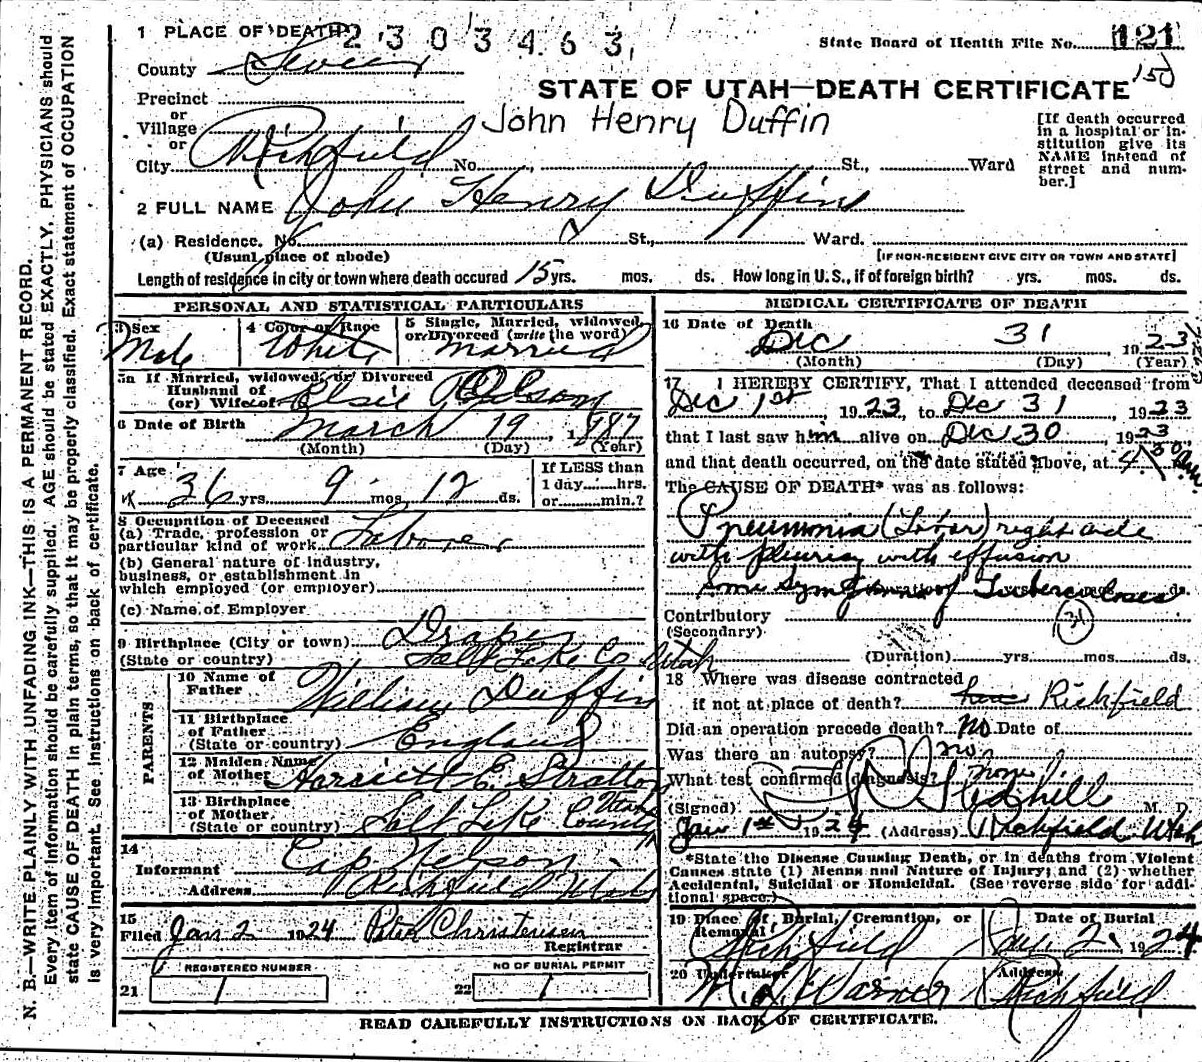 1 PLACE OF DEATH 2303463
State Board of Health File No. 121
150
County Sevier
STATE OF UTAH—DEATH CERTIFICATE
Precinct
or
Village
or
City Richfield No. St., Ward
John Henry Duffin
[If death occurred in a hospital or institution give its NAME instead of street and number.]
2 FULL NAME John Henry Duffin
(a) Residence. No. St., Ward.
(Usual place of abode)
[IF NON-RESIDENT GIVE CITY OR TOWN AND STATE]
Length of residence in city or town where death occured 15 yrs. mos. ds. How long in U. S., if of foreign birth? yrs. mos. ds.
PERSONAL AND STATISTICAL PARTICULARS
3 Sex Male
4 Color or Race White
5 Single, Married, widowed, or Divorced (write the word) married
5a If Married, widowed, or Divorced
Husband of
(or) Wife of Elsie Olson
6 Date of Birth March 19, 1887
(Month) (Day) (Year)
7 Age 36 yrs 9 mos 12 ds.
If LESS than
1 day hrs.
or min.?
8 Occupation of Deceased
(a) Trade, profession or
particular kind of work Laborer
(b) General nature of industry,
business, or establishment in
which employed (or employer)
(c) Name of Employer
9 Birthplace (City or town) Draper
(State or country) Salt Lake Co Utah
PARENTS
10 Name of Father William Duffin
11 Birthplace of Father
(State or country) England
12 Maiden Name of Mother Harriett E. Stratton
13 Birthplace of Mother
(State or country) Salt Lake County Utah
14
Informant Nelson
Address Richfield Utah
15
Filed Jan 2 1924 Peter Christensen
Registrar
REGISTERED NUMBER
21 1
NO OF BURIAL PERMIT
22 1
MEDICAL CERTIFICATE OF DEATH
16 Date of Death
Dec 31 1923
(Month) (Day) (Year)
17 I HEREBY CERTIFY, That I attended deceased from
Dec 1st, 1923, to Dec 31, 1923
that I last saw him alive on Dec 30, 1923
and that death occurred, on the date stated above, at 4:30 m
The CAUSE OF DEATH* was as follows:
Pneumonia (Lobar) right side
with pleurisy with effusion
Some symptoms of Tuberculoses
Contributory
(Secondary)
31
(Duration) yrs. mos. ds.
18 Where was disease contracted
if not at place of death? Richfield
Did an operation precede death? No Date of
Was there an autopsy? no
What test confirmed diagnosis? none
(Signed) Gledhill M. D.
Jan 1st 1924 (Address) Richfield Utah
*State the Disease Causing Death, or in deaths from Violent
Causes state (1) Means and Nature of Injury; and (2) whether
Accidental, Suicidal or Homicidal. (See reverse side for additional space.)
19 Place of Burial, Cremation, or Removal Richfield
Date of Burial Jan 2 1924
20 Undertaker Warner
Address Richfield
READ CAREFULLY INSTRUCTIONS ON BACK OF CERTIFICATE.
N. B.—WRITE PLAINLY WITH UNFADING INK—THIS IS A PERMANENT RECORD.
Every item of information should be carefully supplied. AGE should be stated EXACTLY. PHYSICIANS should
state CAUSE OF DEATH in plain terms, so that it may be properly classified. Exact statement of OCCUPATION
is very important. See instructions on back of certificate.